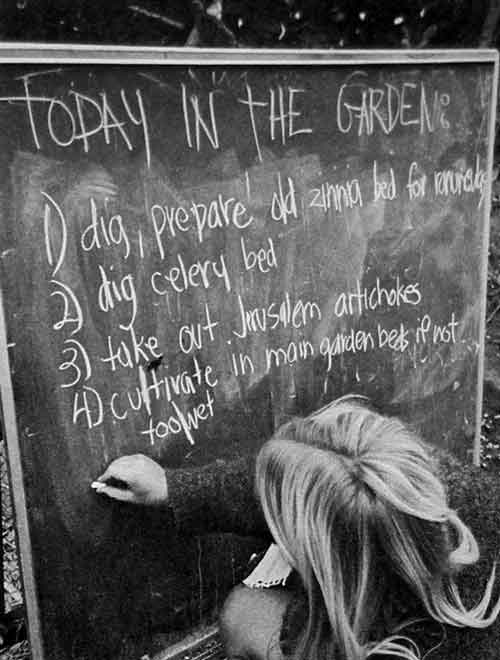 TODAY IN THE GARDEN:
1) dig, prepare old zinnia bed for ranunculus
2) dig celery bed
3) take out Jerusalem artichokes
4) cultivate in main garden beds if not
too wet